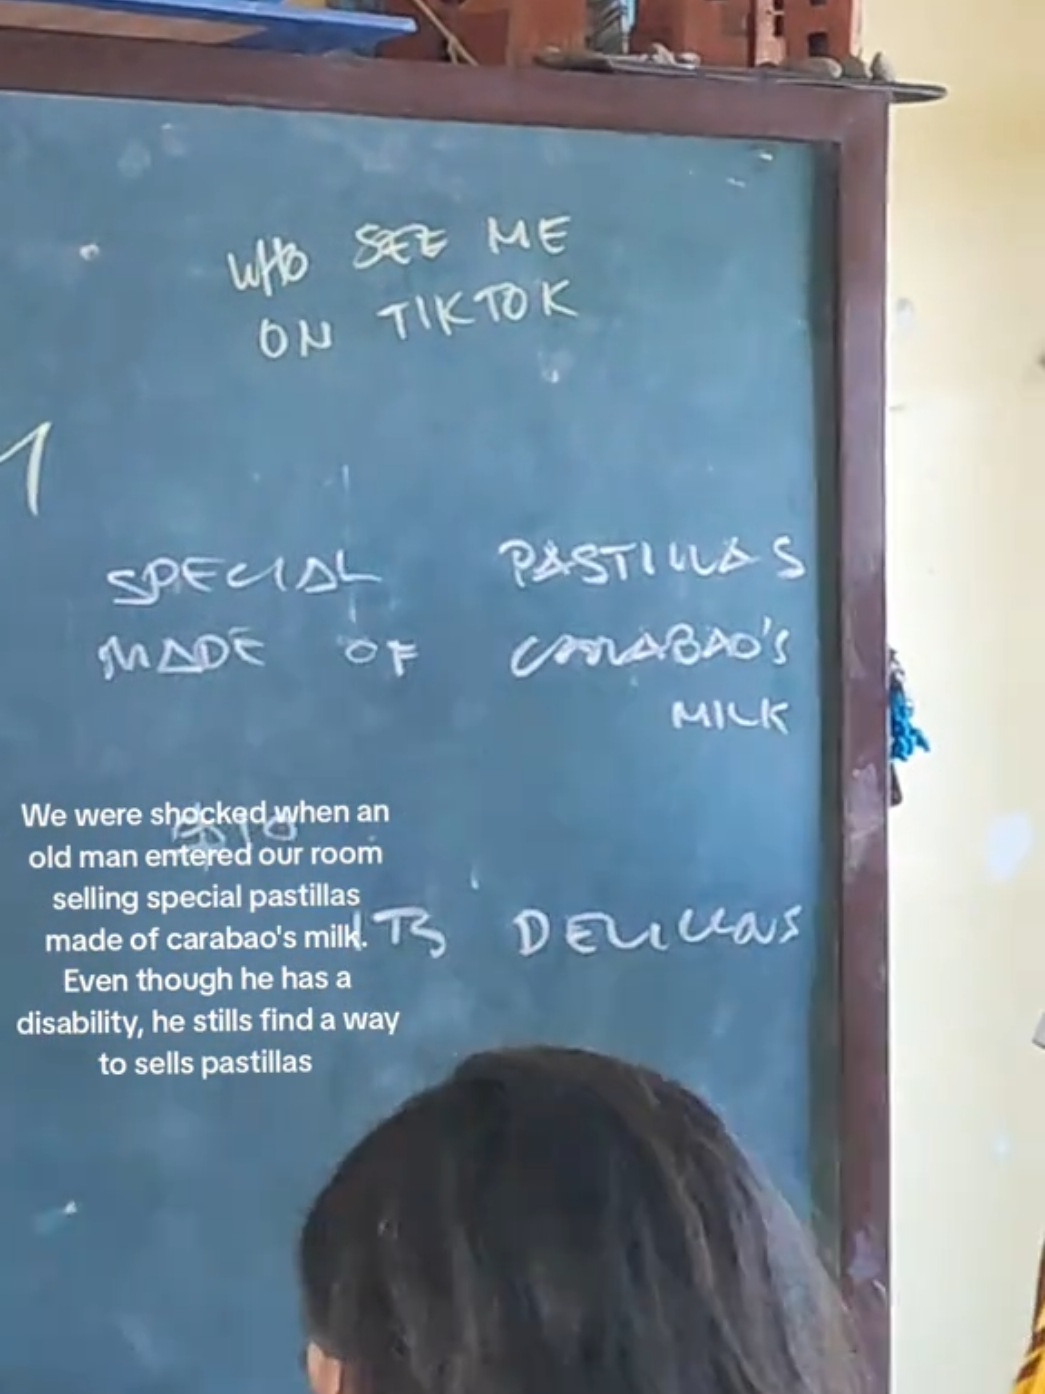 WHO SEE ME
ON TIKTOK
SPECIAL PASTILLAS
MADE OF CARABAO'S
MILK
ITS DELICIOUS
We were shocked when an
old man entered our room
selling special pastillas
made of carabao's milk.
Even though he has a
disability, he stills find a way
to sells pastillas